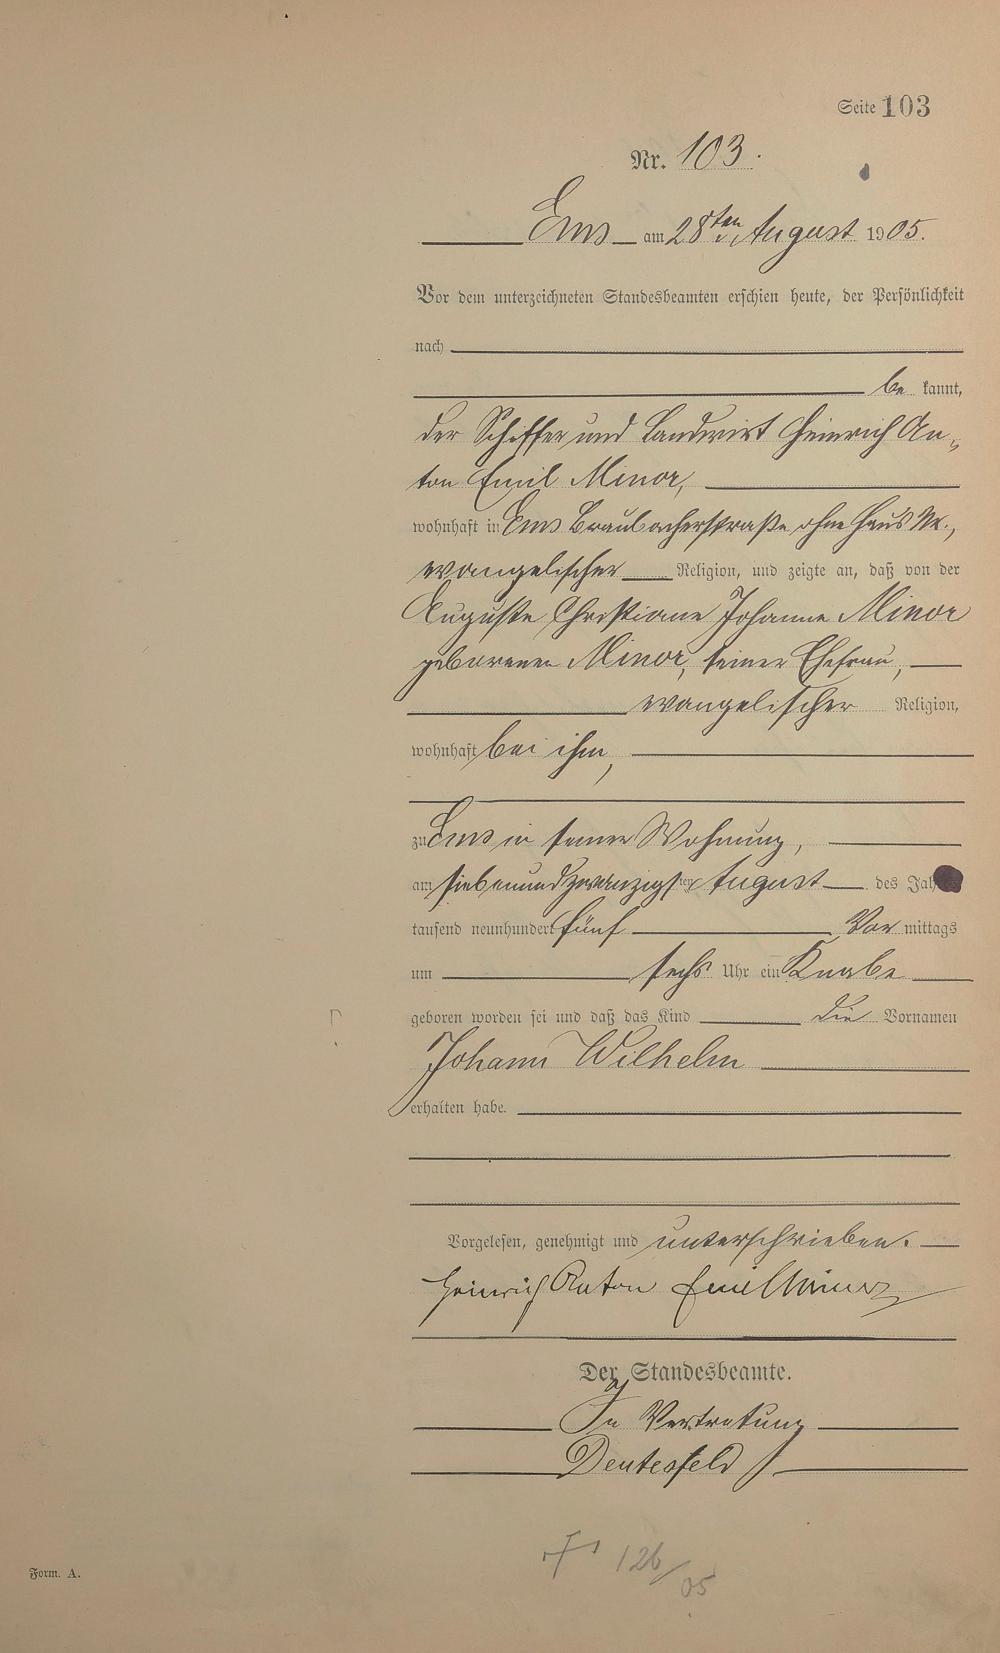 Seite 103
Nr. 103.
Ems am 28ten August 1905.
Vor dem unterzeichneten Standesbeamten erschien heute, der Persönlichkeit
nach
be kannt,
der Schiffer und Landwirt Heinrich An-
ton Emil Minor,
wohnhaft in Ems Braubacherstraße ohne Haus Nr.,
evangelischer Religion, und zeigte an, daß von der
Auguste Christiane Johanne Minor
geborenen Minor, seiner Ehefrau,
evangelischer Religion,
wohnhaft bei ihm,
zu Ems in seiner Wohnung,
am siebenundzwanzigsten August des Jahres
tausend neunhundert fünf Vor mittags
um sechs Uhr ein Knabe
geboren worden sei und daß das Kind die Vornamen
Johann Wilhelm
erhalten habe.
Vorgelesen, genehmigt und unterschrieben.
Heinrich Anton Emil Minor
Der Standesbeamte.
In Vertretung
Deutesfeld
† 126/05
Form. A.